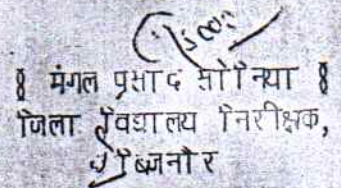 ॥ मंगल प्रसाद सोनिया ॥
जिला विद्यालय निरीक्षक,
बिजनौर